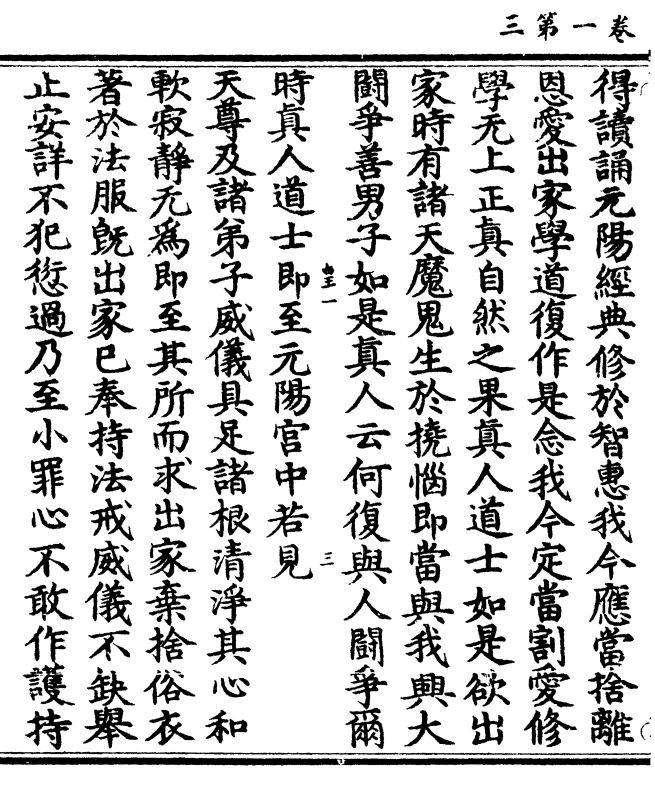 卷一第三
得讀誦元陽經典修於智惠我今應當捨離
恩愛出家學道復作是念我今定當割愛修
學无上正真自然之果真人道士如是欲出
家時有諸天魔鬼生於撓惱即當與我興大
鬭爭善男子如是真人云何復與人鬭爭爾
時真人道士即至元陽宮中若見
天尊及諸弟子威儀具足諸根清淨其心和
軟寂靜无為即至其所而求出家棄捨俗衣
著於法服既出家已奉持法戒威儀不缺舉
止安詳不犯愆過乃至小罪心不敢作護持
三